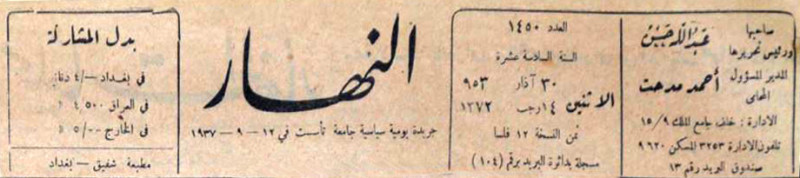 صاحبها
ورئيس تحريرها
عبدالله حسن
المدير المسؤول
المحامي
أحمد مدحت
الادارة : خلف جامع الملك ١٥/٩
تلفون الادارة ٣٢٥٣ المسكن ٩٦٢٠
صندوق البريد رقم ١٣
العدد ١٤٥٠
السنة السادسة عشرة
الاثنين
٣٠ آذار ٩٥٣
١٤ رجب ١٢٧٢
ثمن النسخة ١٢ فلسا
مسجلة بدائرة البريد برقم (١٠٤)
النهار
جريدة يومية سياسية جامعة تأسست في ١٢ - ٩ - ١٩٣٧
بدل المشاركة
في بغداد ٤/—
في العراق ٤,٥٠٠
في الخارج ٥/٠٠
مطبعة شفيق - بغداد